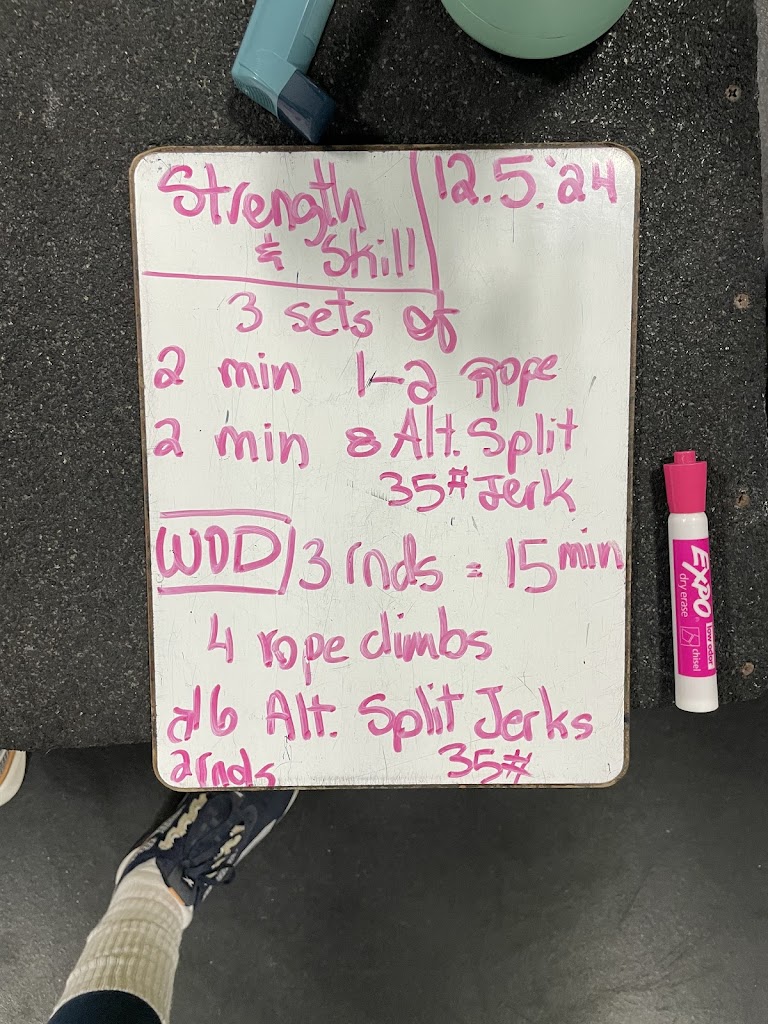 Strength
& Skill
12.5.'24
3 sets of
2 min 1-2 Rope
2 min 8 Alt. Split
35# Jerk
WOD 3 rnds = 15 min
4 rope climbs
16 Alt. Split Jerks
2 rnds 35#
EXPO
low odor
dry erase
chisel